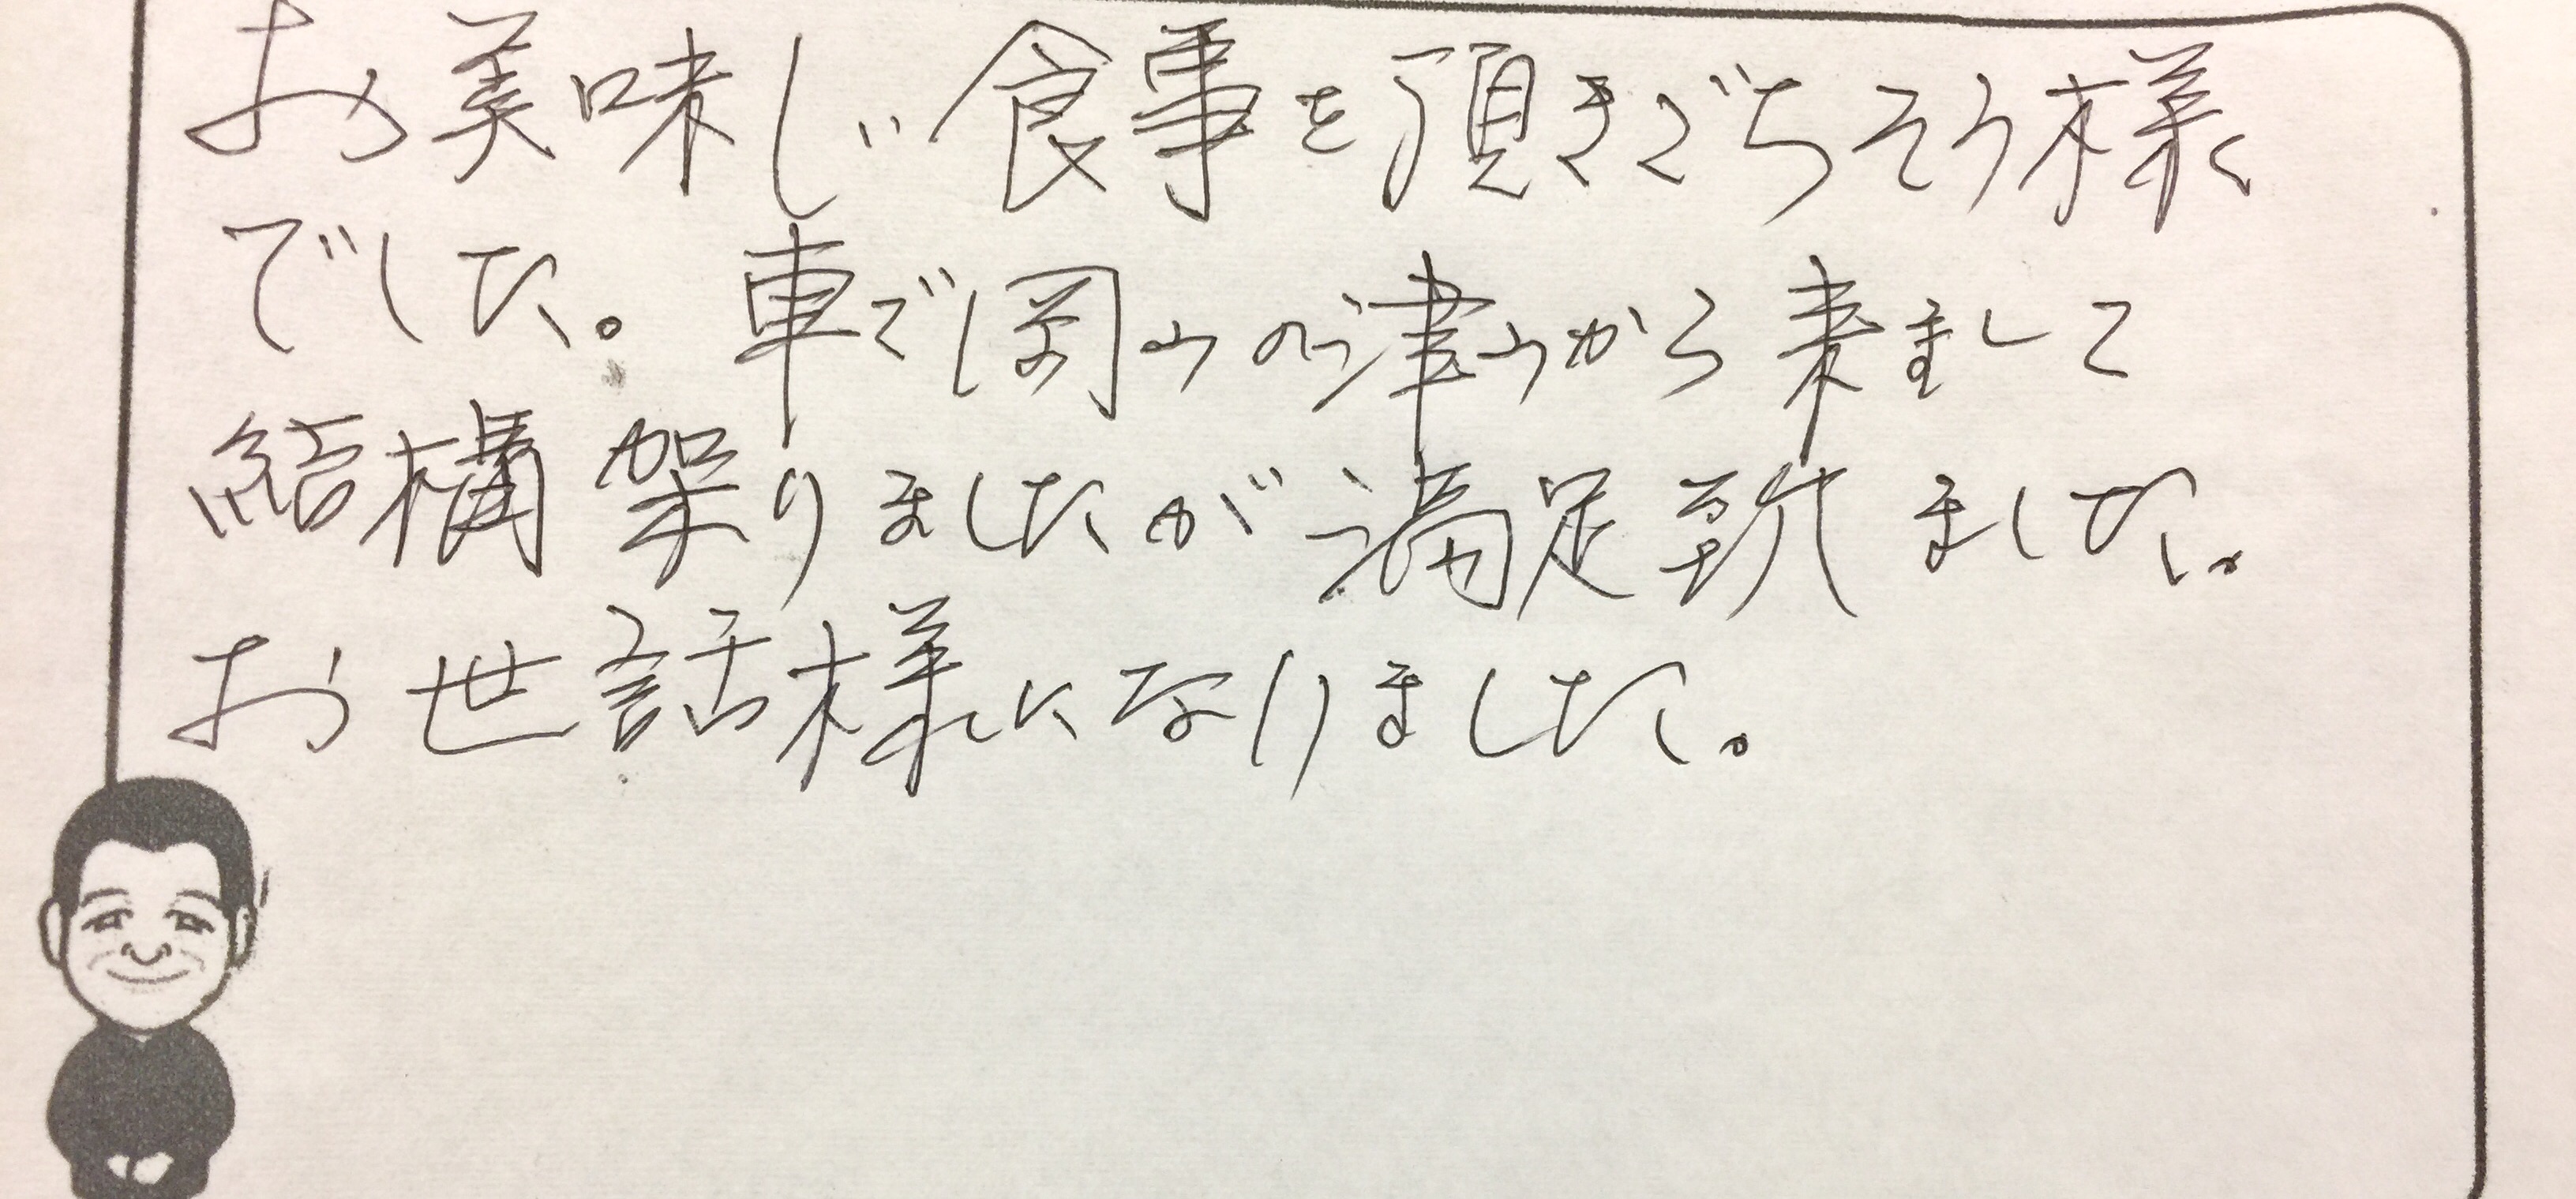 お美味しい食事を頂きごちそう様
でした。車で岡山の津山から来まして
結構架りましたが満足致しました。
お世話様になりました。